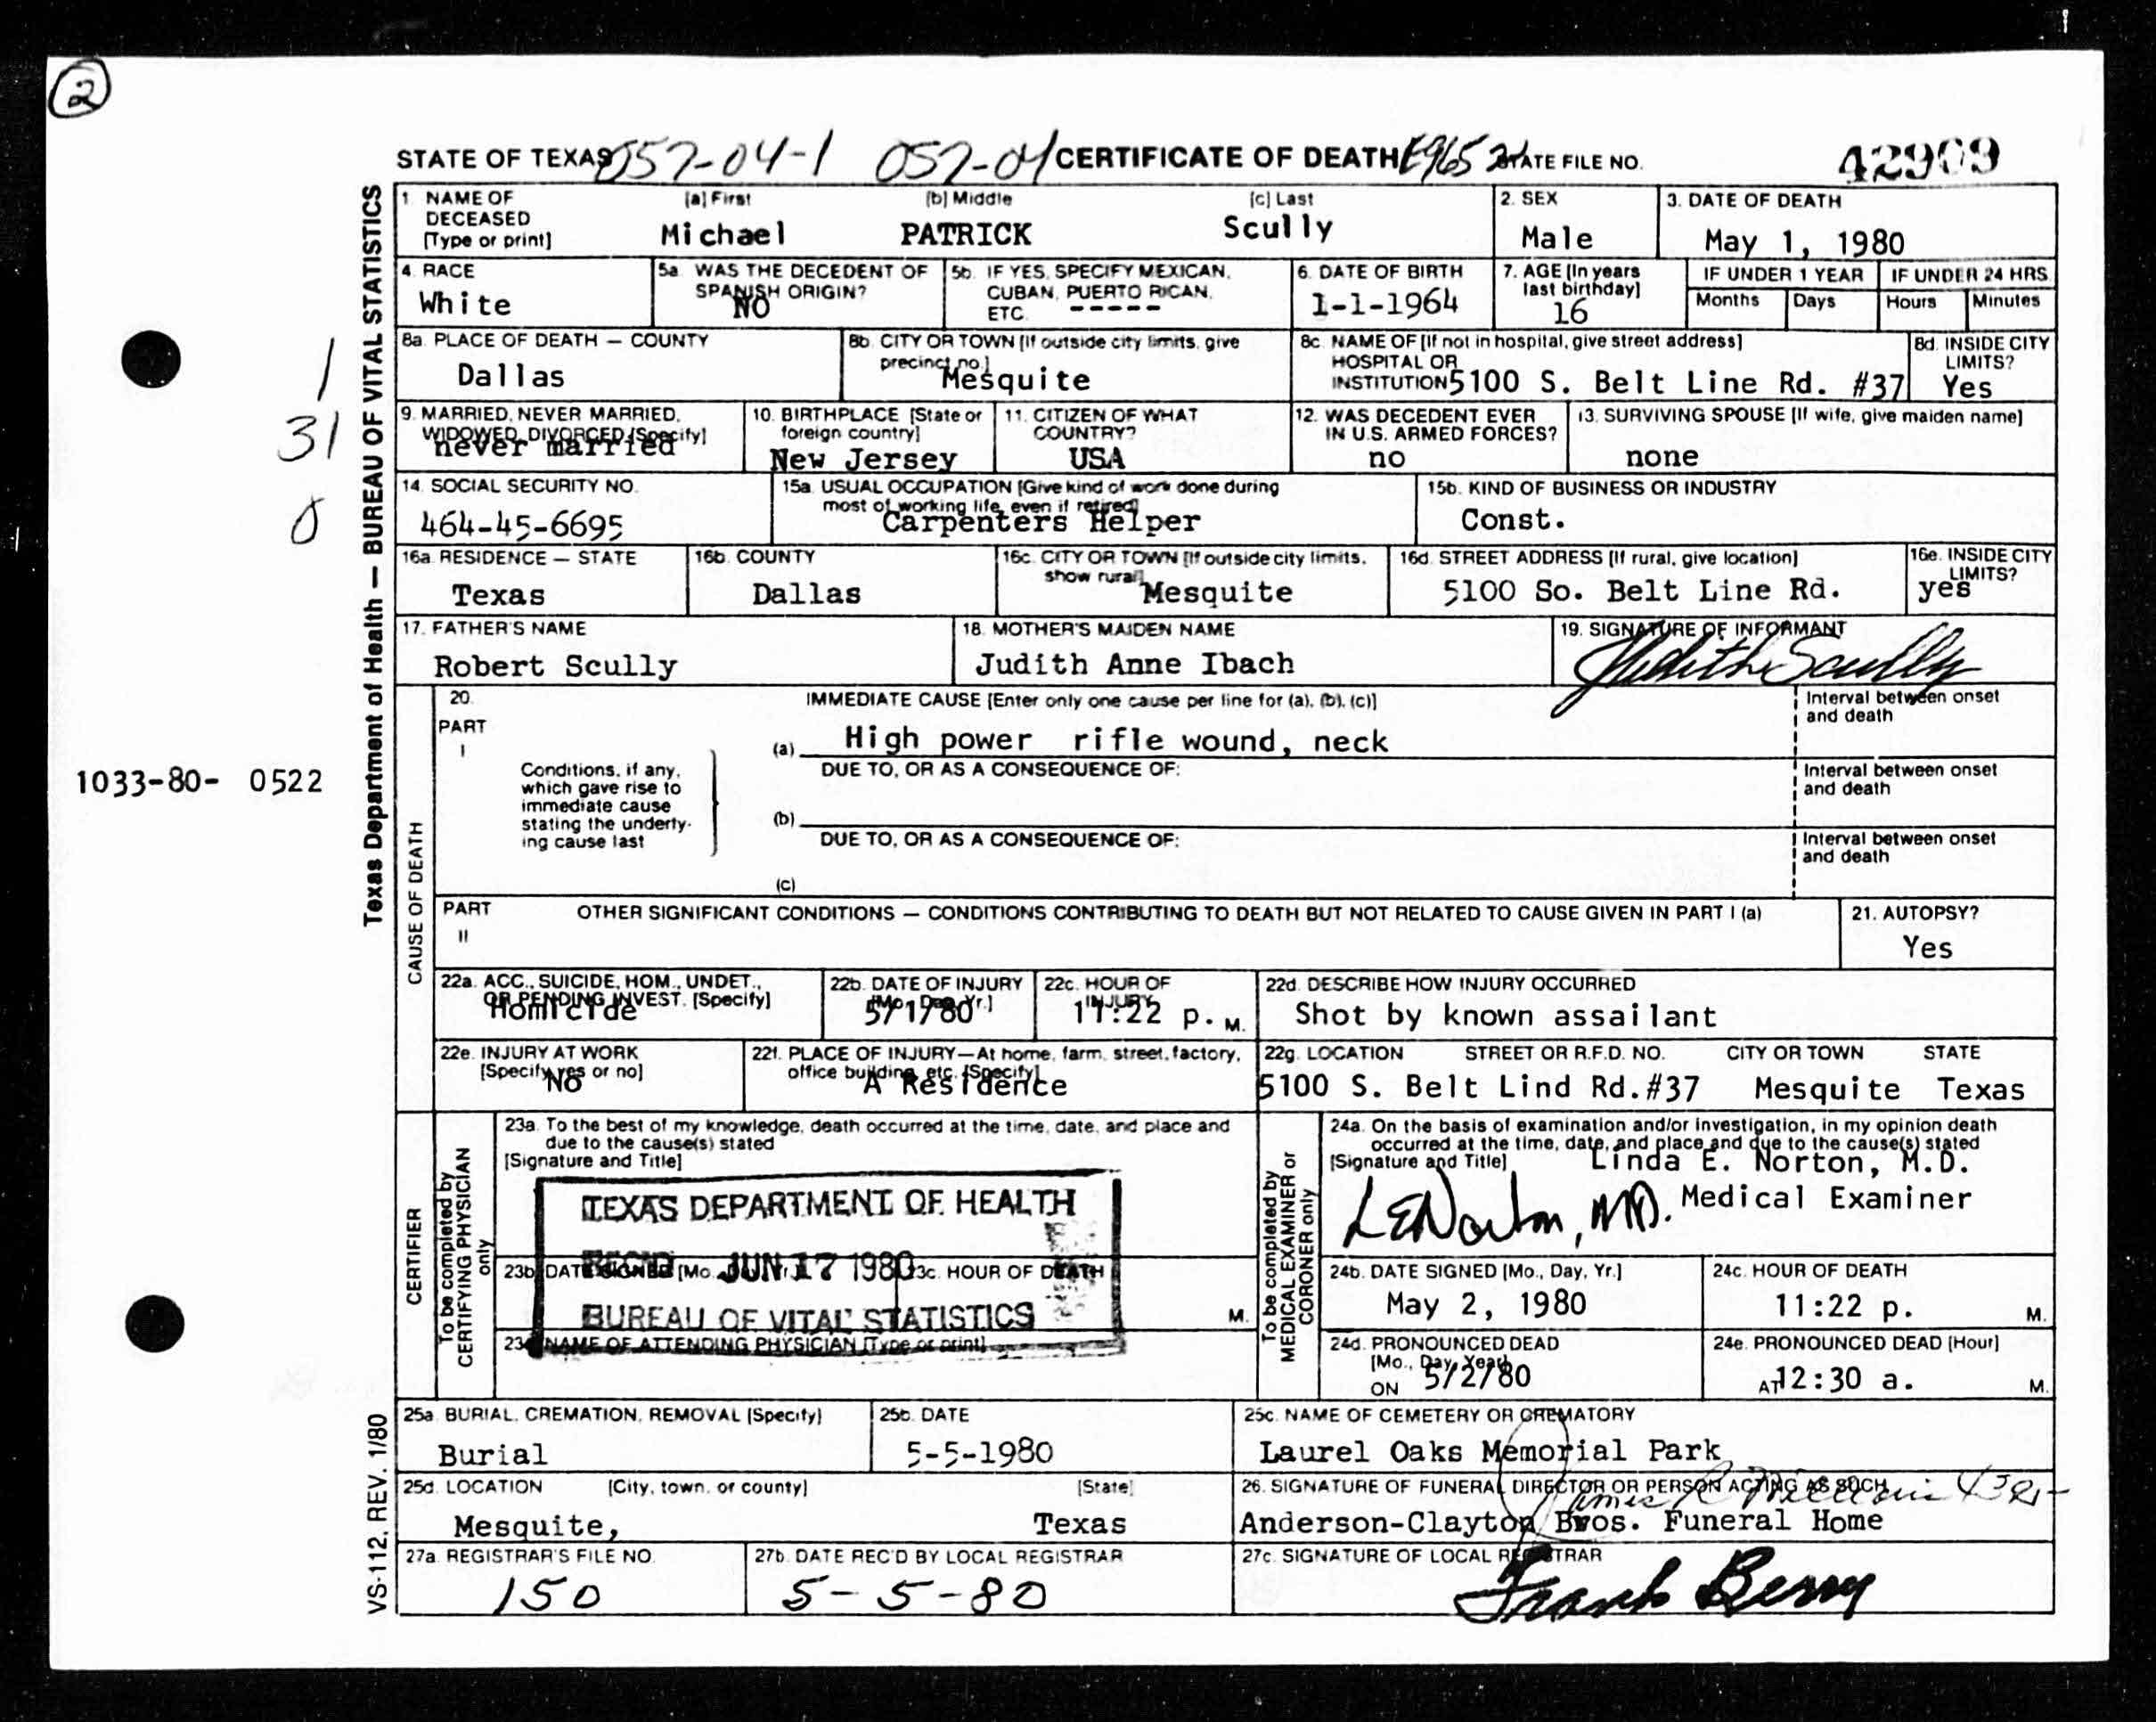 2
STATE OF TEXAS 057-04-1 057-04 CERTIFICATE OF DEATH E965 STATE FILE NO. 42909
Texas Department of Health — BUREAU OF VITAL STATISTICS
1 NAME OF DECEASED [Type or print] (a) First (b) Middle (c) Last 2. SEX 3. DATE OF DEATH
Michael PATRICK Scully Male May 1, 1980
4. RACE 5a. WAS THE DECEDENT OF SPANISH ORIGIN? 5b. IF YES, SPECIFY MEXICAN, CUBAN, PUERTO RICAN, ETC. 6. DATE OF BIRTH 7. AGE [In years last birthday] IF UNDER 1 YEAR IF UNDER 24 HRS.
Months Days Hours Minutes
White NO ----- 1-1-1964 16
8a. PLACE OF DEATH — COUNTY 8b. CITY OR TOWN [If outside city limits, give precinct no.] 8c. NAME OF [If not in hospital, give street address] HOSPITAL OR INSTITUTION 8d. INSIDE CITY LIMITS?
Dallas Mesquite 5100 S. Belt Line Rd. #37 Yes
1
31
0
9. MARRIED, NEVER MARRIED, WIDOWED, DIVORCED [Specify] 10. BIRTHPLACE [State or foreign country] 11. CITIZEN OF WHAT COUNTRY? 12. WAS DECEDENT EVER IN U.S. ARMED FORCES? 13. SURVIVING SPOUSE [If wife, give maiden name]
never married New Jersey USA no none
14. SOCIAL SECURITY NO. 15a. USUAL OCCUPATION [Give kind of work done during most of working life, even if retired] 15b. KIND OF BUSINESS OR INDUSTRY
464-45-6695 Carpenters Helper Const.
16a. RESIDENCE — STATE 16b. COUNTY 16c. CITY OR TOWN [If outside city limits, show rural] 16d. STREET ADDRESS [If rural, give location] 16e. INSIDE CITY LIMITS?
Texas Dallas Mesquite 5100 So. Belt Line Rd. yes
17. FATHER'S NAME 18. MOTHER'S MAIDEN NAME 19. SIGNATURE OF INFORMANT
Robert Scully Judith Anne Ibach Judith Scully
CAUSE OF DEATH
20. PART I IMMEDIATE CAUSE [Enter only one cause per line for (a), (b), (c)] Interval between onset and death
(a) High power rifle wound, neck
Conditions, if any, which gave rise to immediate cause stating the underly- ing cause last
DUE TO, OR AS A CONSEQUENCE OF: Interval between onset and death
(b)
DUE TO, OR AS A CONSEQUENCE OF: Interval between onset and death
(c)
1033-80- 0522
PART II OTHER SIGNIFICANT CONDITIONS — CONDITIONS CONTRIBUTING TO DEATH BUT NOT RELATED TO CAUSE GIVEN IN PART I (a) 21. AUTOPSY?
Yes
22a. ACC., SUICIDE, HOM., UNDET., OR PENDING INVEST. [Specify] 22b. DATE OF INJURY [Mo., Day, Yr.] 22c. HOUR OF INJURY 22d. DESCRIBE HOW INJURY OCCURRED
Homicide 5/1/80 11:22 p. M. Shot by known assailant
22e. INJURY AT WORK [Specify yes or no] 22f. PLACE OF INJURY—At home, farm, street, factory, office building, etc. [Specify] 22g. LOCATION STREET OR R.F.D. NO. CITY OR TOWN STATE
No A Residence 5100 S. Belt Lind Rd.#37 Mesquite Texas
CERTIFIER
To be completed by CERTIFYING PHYSICIAN only
23a. To the best of my knowledge, death occurred at the time, date, and place and due to the cause(s) stated
[Signature and Title]
TEXAS DEPARTMENT OF HEALTH
REC'D JUN 17 1980
BUREAU OF VITAL STATISTICS
23b. DATE SIGNED [Mo. 23c. HOUR OF DEATH M.
23d. NAME OF ATTENDING PHYSICIAN [Type or print]
To be completed by MEDICAL EXAMINER or CORONER only
24a. On the basis of examination and/or investigation, in my opinion death occurred at the time, date, and place and due to the cause(s) stated
[Signature and Title] Linda E. Norton, M.D.
LENorton, MD. Medical Examiner
24b. DATE SIGNED [Mo., Day, Yr.] 24c. HOUR OF DEATH
May 2, 1980 11:22 p. M.
24d. PRONOUNCED DEAD [Mo., Day, Year] 24e. PRONOUNCED DEAD [Hour]
ON 5/2/80 AT 12:30 a. M.
25a. BURIAL, CREMATION, REMOVAL [Specify] 25b. DATE 25c. NAME OF CEMETERY OR CREMATORY
Burial 5-5-1980 Laurel Oaks Memorial Park
25d. LOCATION [City, town, or county] [State] 26. SIGNATURE OF FUNERAL DIRECTOR OR PERSON ACTING AS SUCH
Mesquite, Texas Anderson-Clayton Bros. Funeral Home
27a. REGISTRAR'S FILE NO. 27b. DATE REC'D BY LOCAL REGISTRAR 27c. SIGNATURE OF LOCAL REGISTRAR
150 5-5-80 Frank Berry
VS-112, REV. 1/80